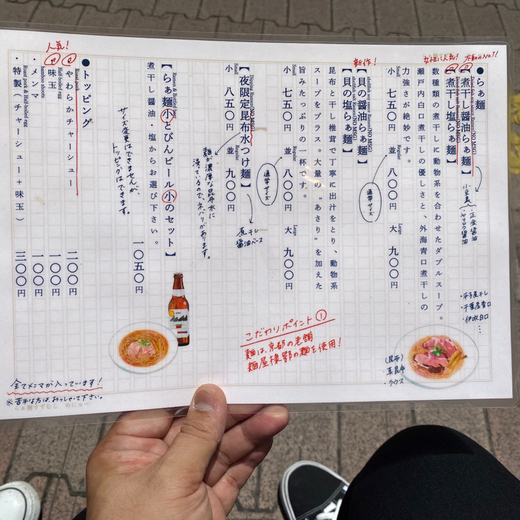 女性に人気！
当店のNo.1！
●らぁ麺
【煮干し醤油らぁ麺】
【煮干し塩らぁ麺】
数種類の煮干しに動物系を合わせたダブルスープ。
瀬戸内白口煮干しの優しさと、外海青口煮干しの
力強さが絶妙です。
小 七五〇円 並 八〇〇円 大 九〇〇円
Small Regular Large
通常サイズ
・平子煮干し
・千葉産青口
・伊吹白口
新作！
【貝の醤油らぁ麺】
【貝の塩らぁ麺】
昆布と干し椎茸で丁寧に出汁をとり、動物系
スープをプラス。大量の“あさり”を加えた
旨みたっぷりの一杯です。
小 七五〇円 並 八〇〇円 大 九〇〇円
通常サイズ
【夜限定昆布水つけ麺】
小 八五〇円 並 九〇〇円
煮干し
醤油ベース
麺が濃厚な昆布水に
浸っているので、ネバリがあります。
【らぁ麺小とびんビール小のセット】
煮干し醤油・塩からお選び下さい。
一〇五〇円
サイズ変更はできませんが、
トッピングはできます。
人気！
●トッピング
・やわらかチャーシュー 二〇〇円
・味玉 一〇〇円
・メンマ 一〇〇円
・特製（チャーシュー＋味玉） 三〇〇円
こだわりポイント①
麺は、京都の老舗
麺屋棣鄂の麺を使用！
（昆布）
真昆布
・ラウス
全てメンマが入っています！
※苦手な方は、おっしゃって下さい。